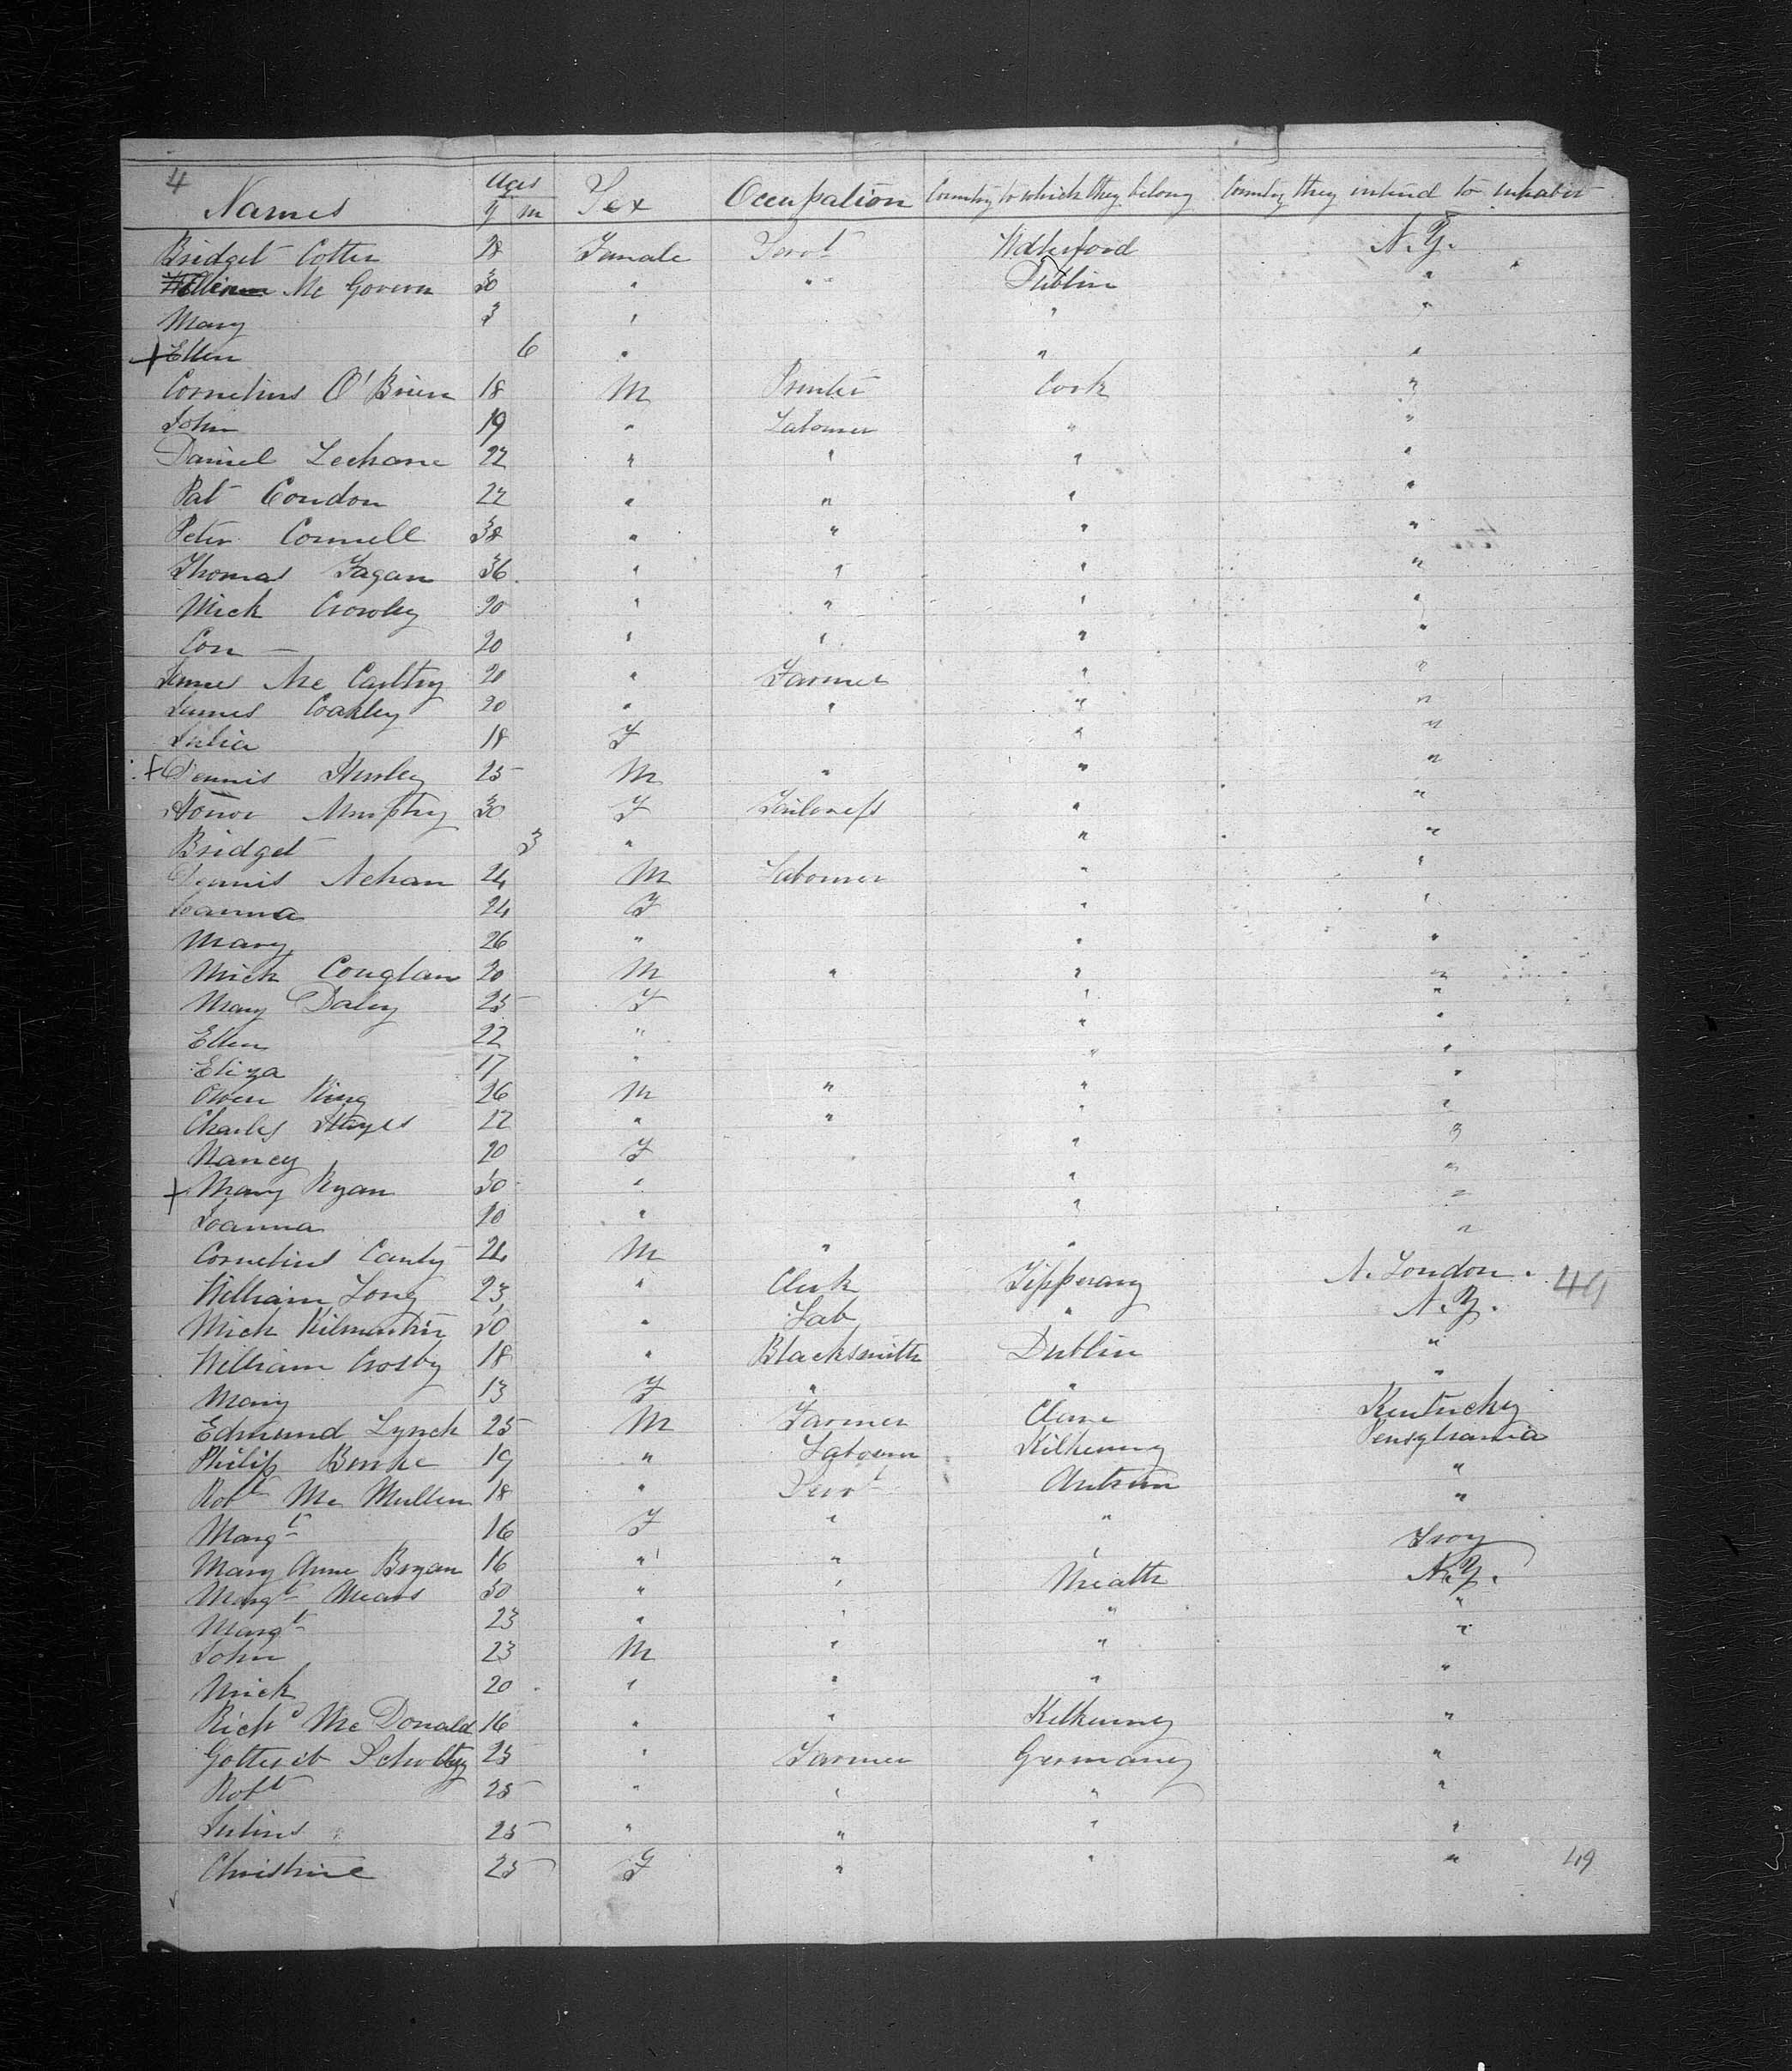 4
Names Ages y m Sex Occupation Country to which they belong Country they intend to inhabit
Bridget Cotter 28 Female Servt Waterford N.Y.
Mc Govern 30 " " Dublin "
Mary 3 " " "
+ Ellen 6 " " "
Cornelius O'Brien 18 M Printer Cork "
John 19 " Labourer " "
Daniel Leehane 22 " " " "
Pat Condon 22 " " " "
Peter Connell 38 " " " "
Thomas Fagan 36 " " " "
Mick Crowley 20 " " " "
Con — 20 " " " "
James Mc Carthy 20 " Farmer " "
James Coakley 20 " " " "
Julia 18 F " "
+ Dennis Hurley 25 M " " "
Murphy 30 F Tailoress " "
Bridget 3 " " "
Dennis Nehan 24 M Labourer " "
Joanna 24 F " "
Mary 26 " " "
Mick Couglan 20 M " " "
Mary Daley 25 F " "
Ellen 22 " " "
Eliza 17 " " "
Owen King 26 M " " "
Charles Hayes 22 " " " "
Nancy 20 F " "
+ Mary Ryan 30 " " "
Joanna 20 " " "
Cornelius Canty 24 M " " "
William Long 23 " Clerk Tipperary N. London.
Mick Kilmartin 20 " Lab " N.Y.
William Crosby 18 " Blacksmith Dublin "
Mary 13 F " " "
Edmund Lynch 25 M Farmer Clare Kentucky
Philip Burke 19 " Labourer Kilkenny Pensylvania
Robt Mc Mullen 18 " Servt Antrim "
Margt 16 F " " "
Mary Anne Bryan 16 " " " Troy
Margt Mears 30 " " Meath N.Y.
Margt 23 " " " "
John 23 M " " "
Mick 20 " " " "
Richd Mc Donald 16 " " Kilkenny "
Gotterieb 25 " Farmer Germany "
Robt 25 " " " "
Julius 25 " " " "
Christine 25 F " " " 49